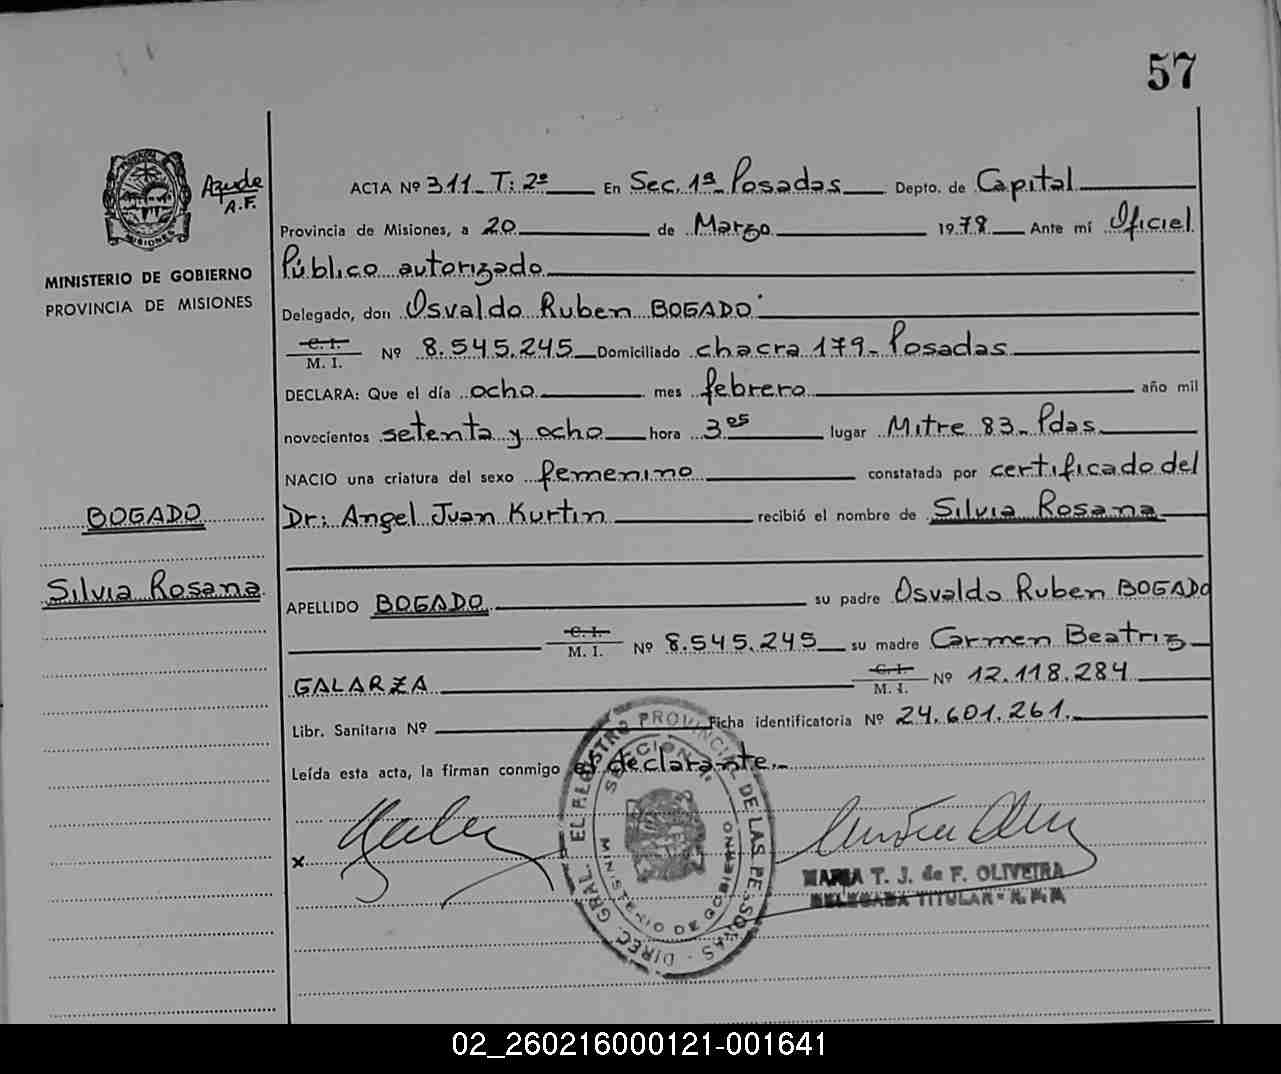 57
Ayude
A.F.
MINISTERIO DE GOBIERNO
PROVINCIA DE MISIONES
ACTA Nº 311_ T: 2º En Sec. 1ª_ Posadas Depto. de Capital
Provincia de Misiones, a 20 de Marzo 1978 Ante mí Oficiel
Público autorizado
Delegado, don Osvaldo Ruben BOGADO
C. I.
M. I. Nº 8.545.245 Domiciliado chacra 179_ Posadas
DECLARA: Que el día ocho mes febrero año mil
novecientos setenta y ocho hora 3 es lugar Mitre 83_ Pdas.
NACIO una criatura del sexo femenino constatada por certificado del
Dr: Angel Juan Kurtin recibió el nombre de Silvia Rosana
BOGADO
Silvia Rosana
APELLIDO BOGADO su padre Osvaldo Ruben BOGADO
C. I.
M. I. Nº 8.545.245 su madre Carmen Beatriz
GALARZA C. I.
M. I. Nº 12.118.284
Libr. Sanitaria Nº Ficha identificatoria Nº 24.601.261.
Leída esta acta, la firman conmigo el declarante._
x
DIREC. GRAL. DE LAS PERSONAS
MINISTERIO DE GOBIERNO
MARIA T. J. de F. OLIVEIRA
DELEGADA TITULAR
02_260216000121-001641